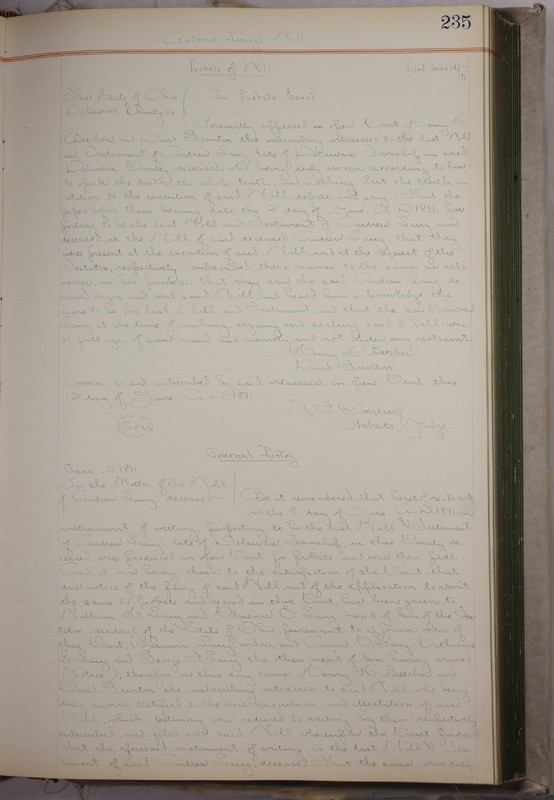 235
Andrew Lang's Will
Probate of Will
The State of Ohio
Delaware County ss
In Probate Court
Personally appeared in open Court Henry H.
Beecher and the subscribing witnesses to the last Will
and Testament of Andrew Lang late of Delaware Township in said
Delaware County deceased, who being duly sworn according to law
to speak the truth the whole truth, and nothing but the truth, in
relation to the execution of said Will, depose and say That the
paper before them bearing date the 2 day of June A.D. 1891, pur
porting to be the last Will and Testament of Andrew Lang now
deceased, is the Will of said deceased Andrew Lang, that they
were present at the execution of said Will, and at the request of the
Testator, respectively subscribed their names to the same as wit
nesses, in his presence, that they saw the said Andrew Lang de
ceased sign and seal said Will, and heard him acknowledge the
same to be his last Will and Testament, and that the said Andrew
Lang at the time of making, signing and sealing said Will, was
of full age, of sound mind and memory, and not under any restraint.
Henry H. Beecher
Sworn to and subscribed by said witnesses, in open Court this
12 day of June A.D. 1891.
Seal
Probate Judge
Journal Entry
June 1891
In the Matter of the Will
of Andrew Lang deceased
Be it remembered, that heretofore, to wit
on the 8 day of June A.D. 1891 an
instrument of writing, purporting to be the last Will & Testament
of Andrew Lang late of Delaware Township in this County de
ceased, was produced in open Court for probate and was then filed.
And it now being shown to the satisfaction of the Court, that
due notice of the filing of said Will, and of the application to admit
the same to probate and record in this Court, has been given to
William H Lang and Lang next of kin of the Tes
tator resident of the State of Ohio pursuant to a former order of
this Court, Lang widow, and Lang Catharine
S Lang and George Lang the other next of kin having waived
notice), therefore on this day came Henry H Beecher and
the subscribing witnesses to said Will, who being
duly sworn, testified to the due execution and attestation of said
Will, which testimony was reduced to writing, by them respectively
subscribed, and filed with said Will, whereupon the Court finds
that the aforesaid instrument of writing is the last Will & Tes
tament of said Andrew Lang, deceased, that the same was duly